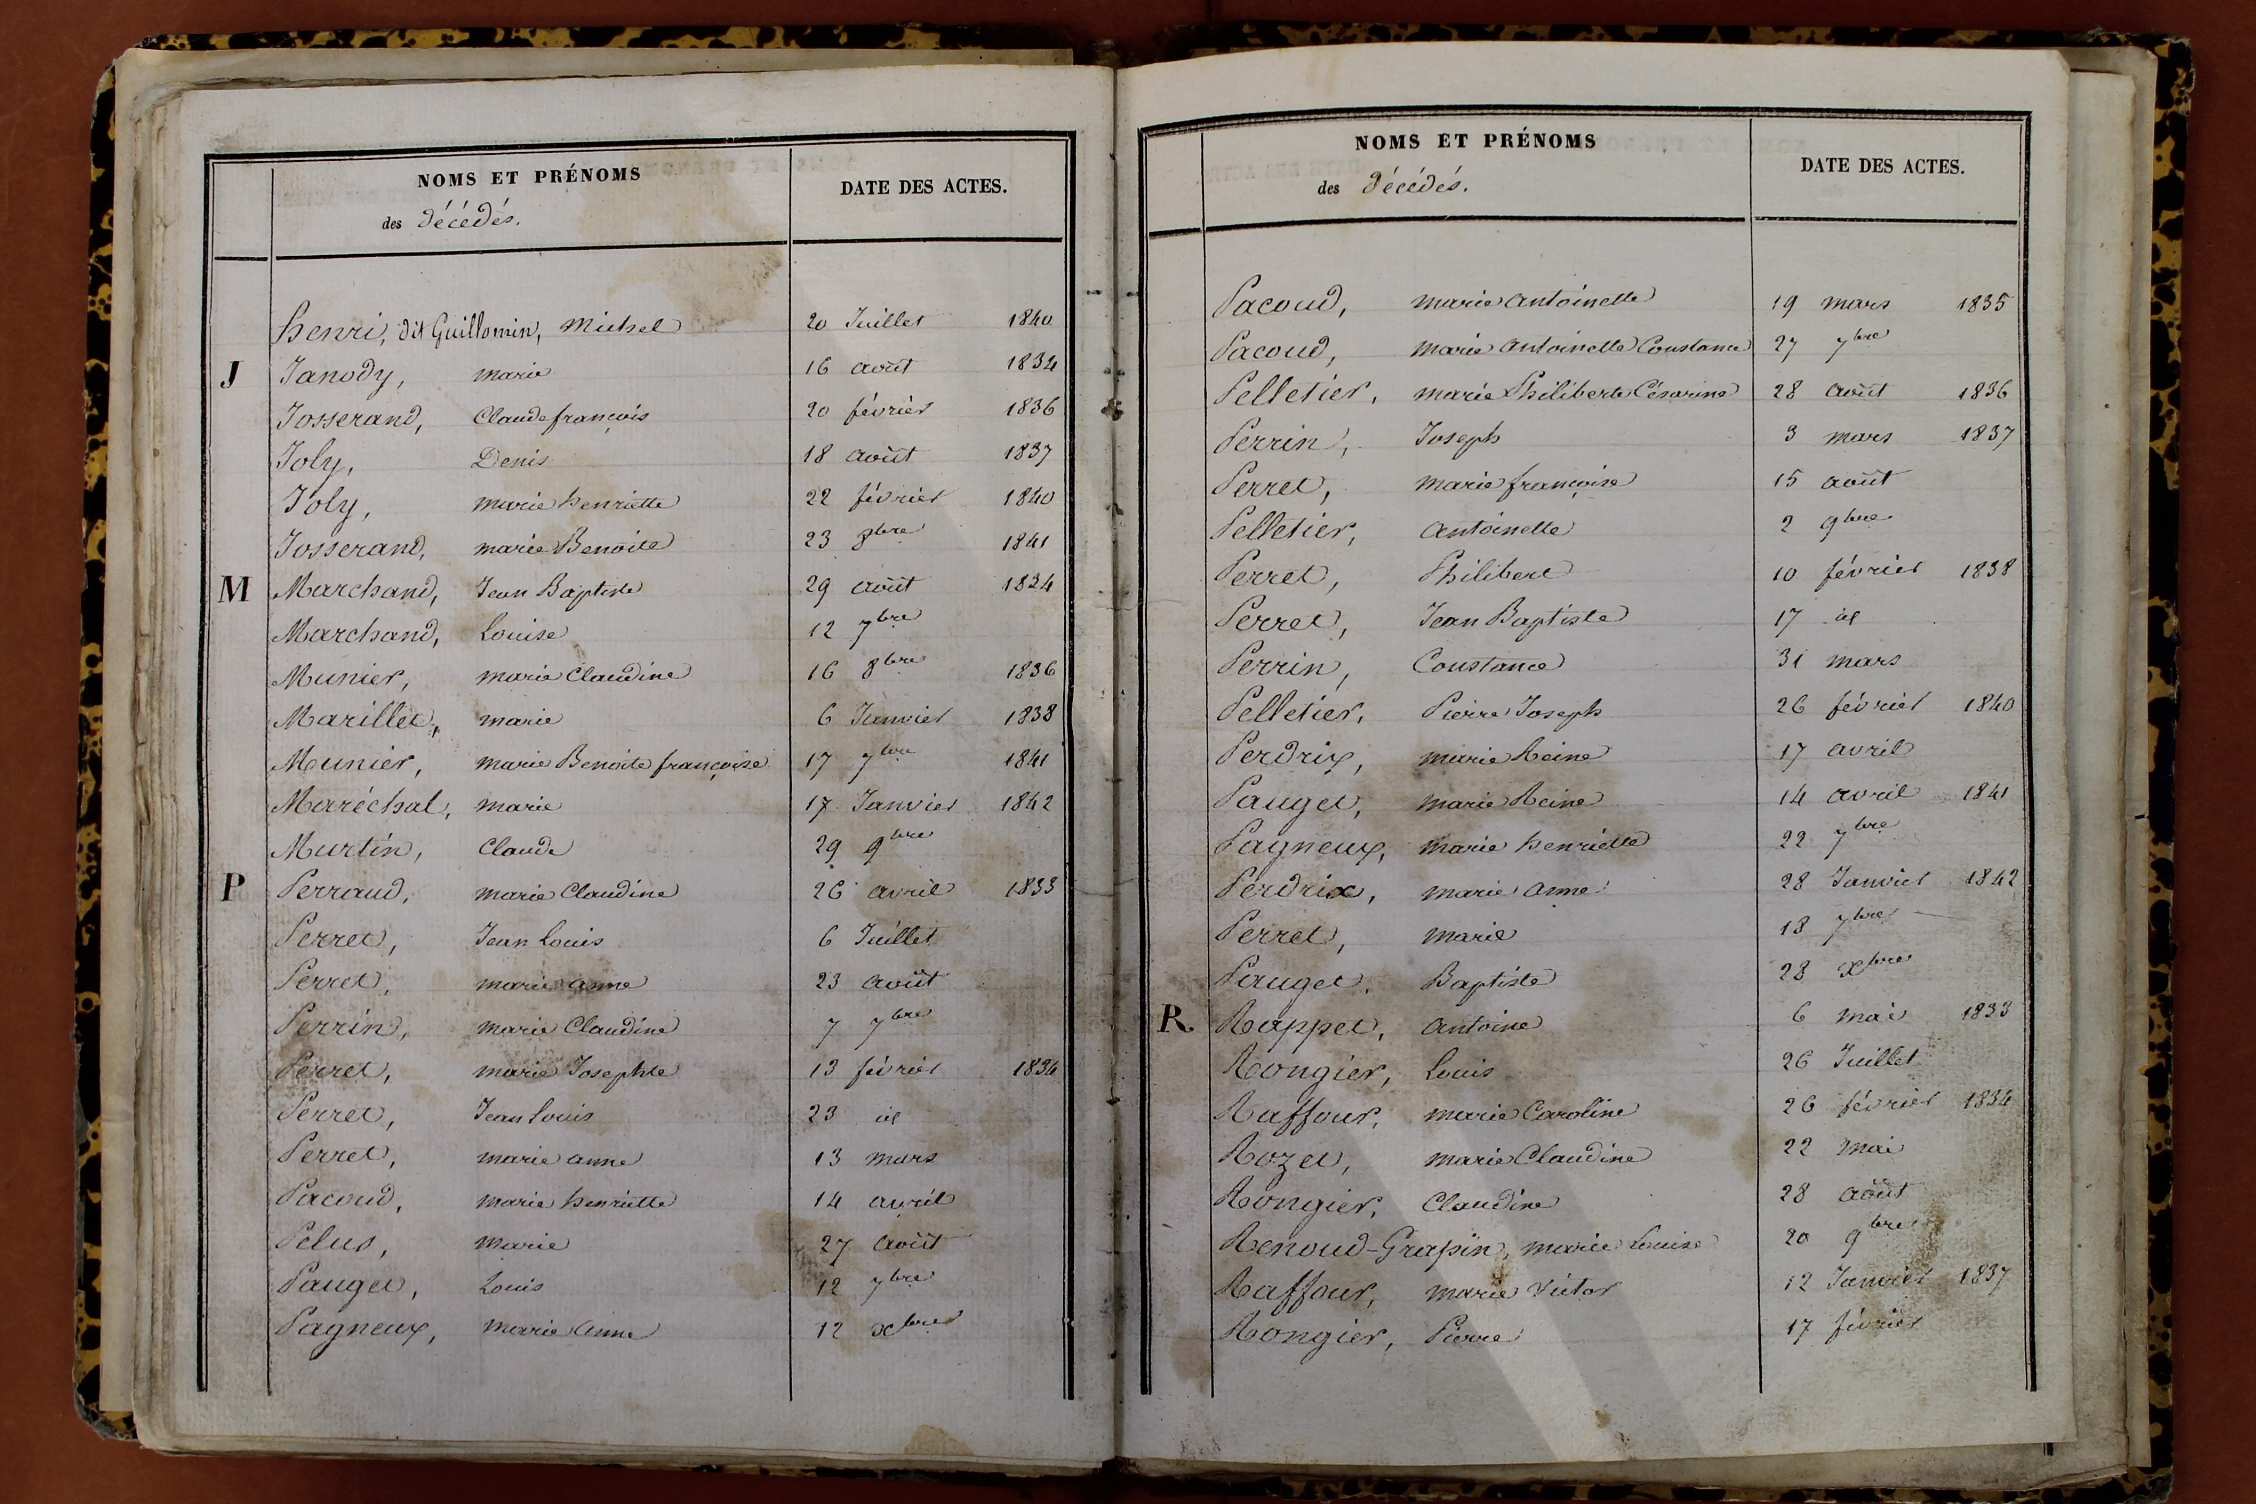 NOMS ET PRÉNOMS
des Décédés.
DATE DES ACTES.
Henri, dit Guillomin, Michel 20 Juillet 1840
J Janody, marie 16 août 1834
Josserand, Claude françois 20 février 1836
Joly, Denis 18 août 1837
Joly, marie henriette 22 février 1840
Josserand, marie Benoite 23 8bre 1841
M Marchand, Jean Baptiste 29 août 1834
Marchand, Louise 12 7bre
Munier, marie Claudine 16 8bre 1836
Marillet, marie 6 Janvier 1838
Munier, marie Benoite françoise 17 7bre 1841
Maréchal, marie 17 Janvier 1842
Murtin, Claude 29 9bre
P Perraud, marie Claudine 26 avril 1833
Perret, Jean Louis 6 Juillet
Perret, marie anne 23 août
Perrin, marie Claudine 7 7bre
Perret, marie Josephte 13 février 1834
Perret, Jean Louis 23 id
Perret, marie anne 13 mars
Pacoud, marie henriette 14 avril
Pelus, marie 27 août
Pauget, Louis 12 7bre
Pagneux, marie anne 12 xbre
NOMS ET PRÉNOMS
des Décédés.
DATE DES ACTES.
Pacoud, marie antoinette 19 mars 1835
Pacoud, marie antoinette Constance 27 7bre
Pelletier, marie Philiberte Césarine 28 août 1836
Perrin, Joseph 3 mars 1837
Perret, marie françoise 15 août
Pelletier, antoinette 2 9bre
Perret, Philibert 10 février 1838
Perret, Jean Baptiste 17 id
Perrin, Constance 31 mars
Pelletier, Pierre Joseph 26 février 1840
Perdrix, marie Reine 17 avril
Pauget, marie Reine 14 avril 1841
Pagneux, marie henriette 22 7bre
Perdrix, marie anne 28 Janvier 1842
Perret, marie 18 7bre
Pauget, Baptiste 28 xbre
R Rappet, antoine 6 mai 1833
Rongier, Louis 26 Juillet
Raffour, marie Caroline 26 février 1834
Rozet, marie Claudine 22 mai
Rongier, Claudine 28 août
Renoud-Grapin, marie Louise 20 9bre
Raffour, marie Victor 12 Janvier 1837
Rongier, Pierre 17 février